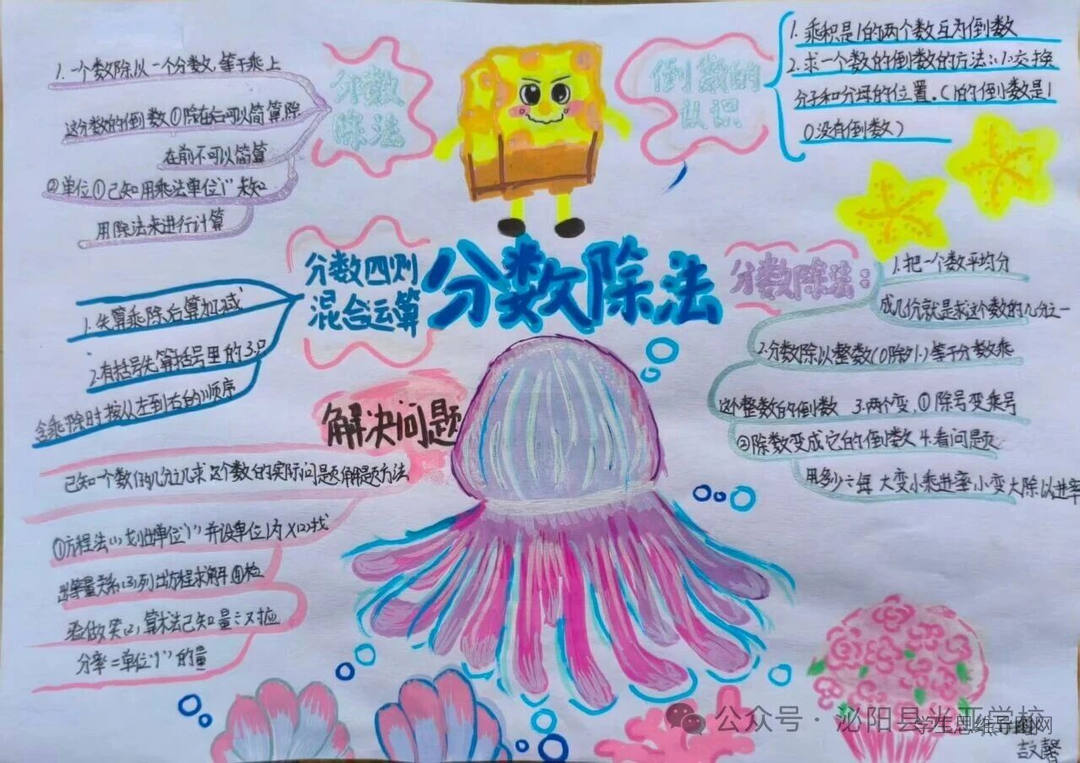 分数除法
分数
除法
1.一个数除以一个分数,等于乘上
这分数的倒数①除在后可以简算除
在前不可以简算
②单位①已知用乘法单位"1"未知
用除法来进行计算
倒数的
认识
1.乘积是1的两个数互为倒数
2.求一个数的倒数的方法:1.交换
分子和分母的位置.(1的倒数是1
0没有倒数)
分数四则
混合运算
1.先算乘除后算加减
2.有括号先算括号里的3.只
含乘除时按从左到右的顺序
分数除法:
1.把一个数平均分
成几份就是求这个数的几分之一
2.分数除以整数(0除外)等于分数乘
这个整数的倒数 3.两个变.①除号变乘号
②除数变成它的倒数4.看问题
用多少÷每 大变小乘进率小变大除以进率
解决问题
已知一个数的几分之几求这个数的实际问题解题方法
①方程法(1)找出单位"1"并设单位1为X(2)找
出等量关系(3)列出方程求解④检
验做答(2)算术法已知量÷对应
分率=单位"1"的量
公众号·泌阳县光亚学校
学生思维导图网